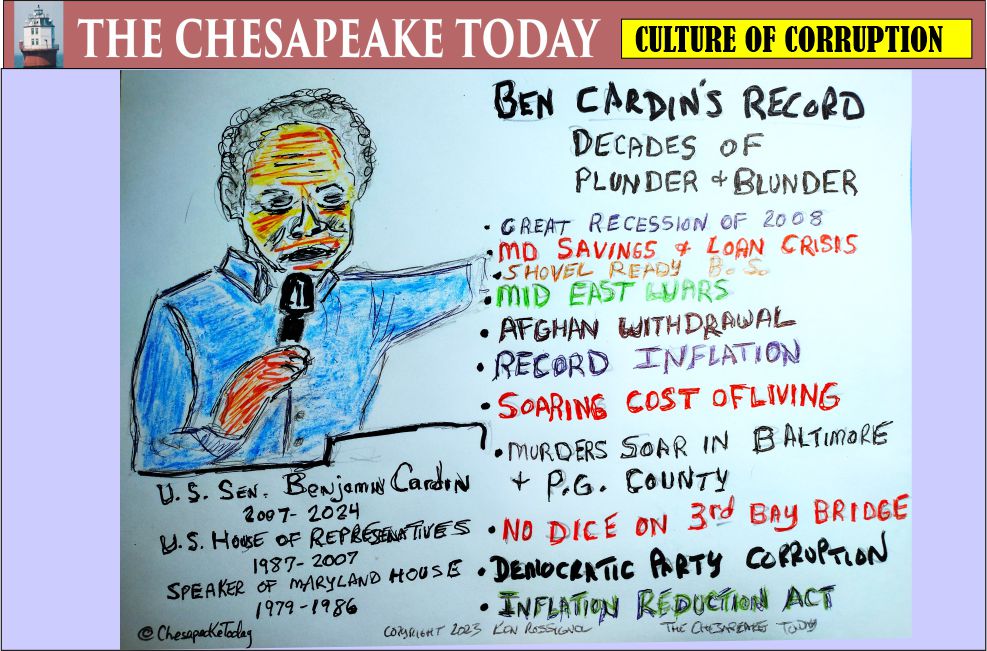 THE CHESAPEAKE TODAY
CULTURE OF CORRUPTION
BEN CARDIN'S RECORD
DECADES OF
PLUNDER + BLUNDER
• GREAT RECESSION OF 2008
• MD SAVINGS + LOAN CRISIS
• SHOVEL READY B.S.
• MID EAST WARS
• AFGHAN WITHDRAWAL
• RECORD INFLATION
• SOARING COST OF LIVING
• MURDERS SOAR IN BALTIMORE
+ P.G. COUNTY
• NO DICE ON 3rd BAY BRIDGE
• DEMOCRATIC PARTY CORRUPTION
• INFLATION REDUCTION ACT
U.S. SEN. Benjamin Cardin
2007-2024
U.S. HOUSE OF REPRESENATIVES
1987-2007
SPEAKER OF MARYLAND HOUSE
1979-1986
© ChesapeakeToday
COPYRIGHT 2023 KEN ROSSIGNOL THE CHESAPEAKE TODAY